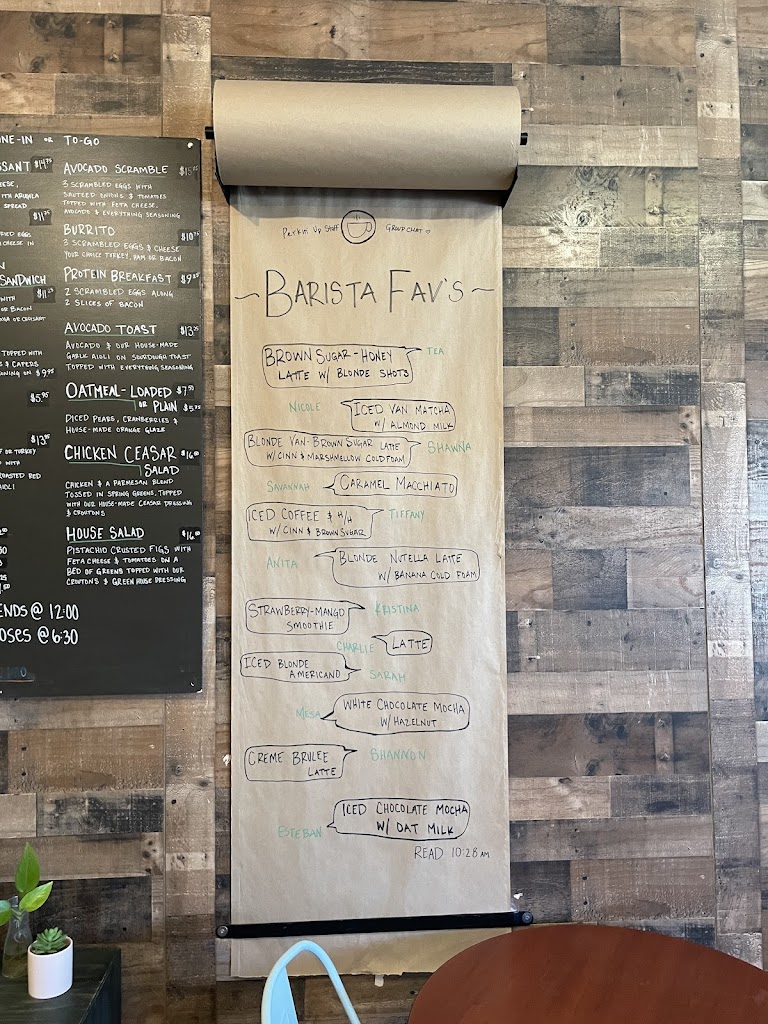 NE-IN OR TO-GO
SSANT $14.75
WITH ARUGULA
SPREAD
$11.25
CHEESE IN
SANDWICH
$11.25
OR BACON
TOPPED WITH
& CAPERS
$9.95
$5.95
$13.95
OR TURKEY
WITH
ROASTED RED
ENDS @ 12:00
OSES @ 6:30
AVOCADO SCRAMBLE
3 SCRAMBLED EGGS WITH
SAUTEED ONIONS & TOMATOES
TOPPED WITH FETA CHEESE,
AVOCADO & EVERYTHING SEASONING
BURRITO
3 SCRAMBLED EGGS & CHEESE
YOUR CHOICE TURKEY, HAM OR BACON
PROTEIN BREAKFAST
2 SCRAMBLED EGGS ALONG
2 SLICES OF BACON
AVOCADO TOAST
AVOCADO & OUR HOUSE-MADE
GARLIC AIOLI ON SOURDOUGH TOAST
TOPPED WITH EVERYTHING SEASONING
OATMEAL-LOADED
OR PLAIN
DICED PEARS, CRANBERRIES &
HOUSE-MADE ORANGE GLAZE
CHICKEN CEASAR
SALAD
CHICKEN & A PARMESAN BLEND
TOSSED IN SPRING GREENS, TOPPED
WITH OUR HOUSE-MADE CEASAR DRESSING
& CROUTONS
HOUSE SALAD
PISTACHIO CRUSTED FIGS WITH
FETA CHEESE & TOMATOES ON A
BED OF GREENS TOPPED WITH OUR
CROUTONS & GREEN HOUSE DRESSING
Perkin' Up Staff GROUP CHAT ♡
~BARISTA FAV'S~
BROWN SUGAR-HONEY TEA
LATTE W/ BLONDE SHOTS
NICOLE ICED VAN MATCHA
W/ ALMOND MILK
BLONDE VAN-BROWN SUGAR LATTE SHAWNA
W/ CINN & MARSHMELLOW COLD FOAM
SAVANNAH CARAMEL MACCHIATO
ICED COFFEE & H/H TIFFANY
W/ CINN & BROWN SUGAR
ANITA BLONDE NUTELLA LATTE
W/ BANANA COLD FOAM
STRAWBERRY-MANGO KRISTINA
SMOOTHIE
CHARLIE LATTE
ICED BLONDE
AMERICANO SARAH
MESA WHITE CHOCOLATE MOCHA
W/ HAZELNUT
CREME BRULEE SHANNON
LATTE
ICED CHOCOLATE MOCHA
ESTEBAN W/ OAT MILK
READ 10:28 AM